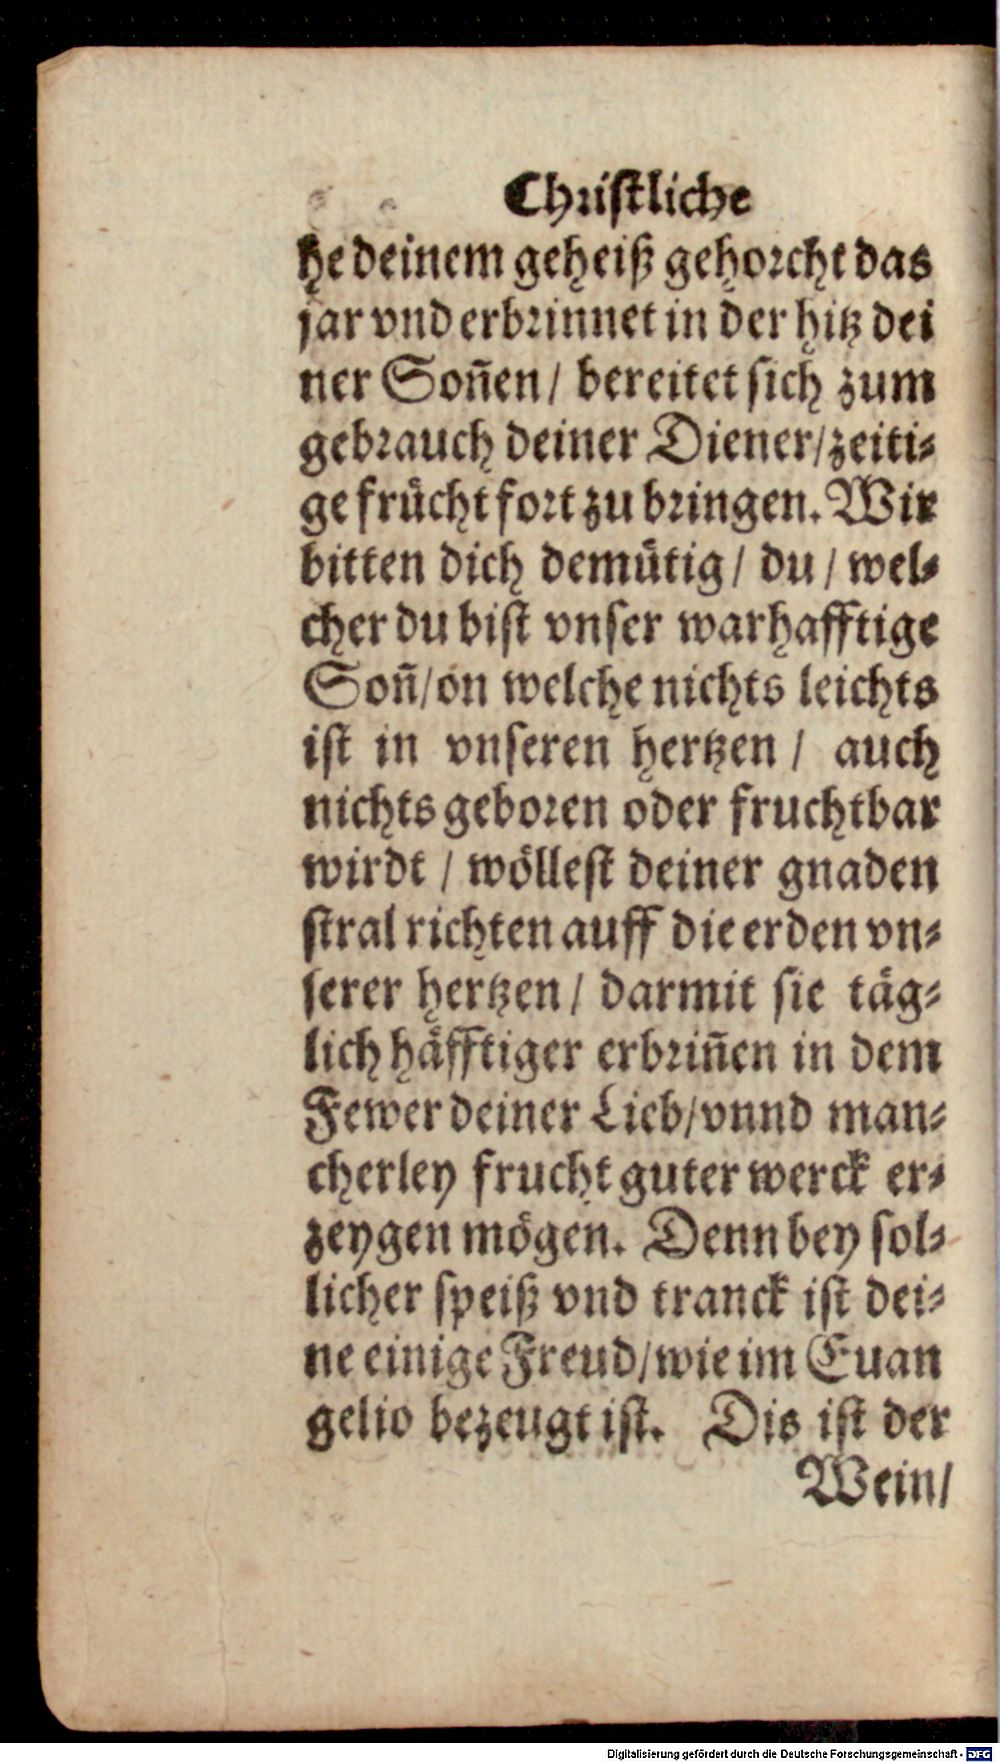 Christliche
he deinem geheiß gehorcht das
jar vnd erbrinnet in der hitz dei
ner Soñen / bereitet sich zum
gebrauch deiner Diener / zeiti⸗
ge frücht fort zu bringen. Wir
bitten dich demütig / du / wel⸗
cher du bist vnser warhafftige
Soñ / on welche nichts leichts
ist in vnseren hertzen / auch
nichts geboren oder fruchtbar
wirdt / wöllest deiner gnaden
stral richten auff die erden vn⸗
serer hertzen / darmit sie täg⸗
lich häfftiger erbriñen in dem
Fewer deiner Lieb / vnnd man⸗
cherley frucht guter werck er⸗
zeygen mögen. Denn bey sol⸗
licher speiß vnd tranck ist dei⸗
ne einige Freud / wie im Euan
gelio bezeugt ist. Dis ist der
Wein /
Digitalisierung gefördert durch die Deutsche Forschungsgemeinschaft - DFG